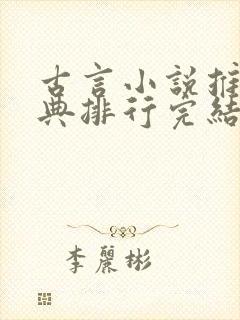 古言小說推
典排行完結
李麗彬